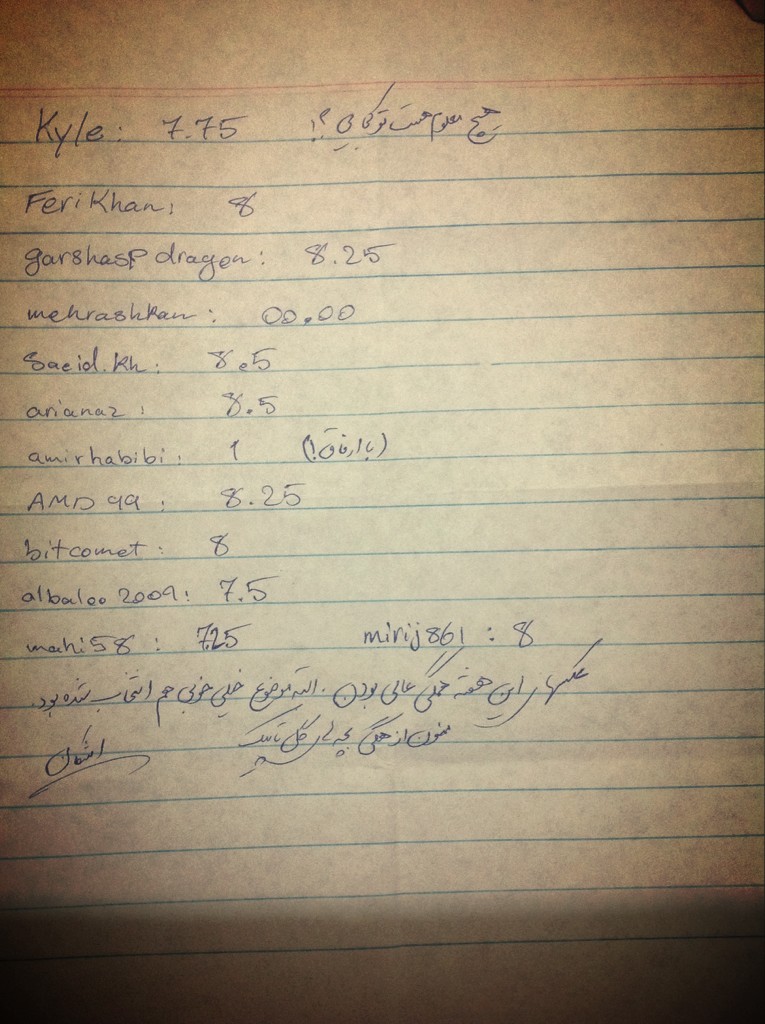 Kyle: 7.75 هیچ معلوم هست تو کجایی؟!
FeriKhan: 8
garshasp dragon: 8.25
mehrashkan: 00.00
Saeid.kh: 8.5
arianaz: 8.5
amirhabibi: 1 (با ارفاق!)
AMD 99: 8.25
bitcomet: 8
albaloo 2009: 7.5
mahi58: 7.25 mirij861: 8
عکسهای این هفته همگی عالی بودن. البته موضوع خیلی خوبی هم انتخاب شده بود.
ممنون از همگی بچه های گل تاپیک
اشکان